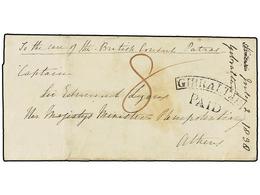 To the care of the British Consul Patras
8
Captain
Sir Edmund Lyons
Her Majesty's Minister Plenipotentiary
Athens
GIBRALTAR
PAID
Gibraltar
1838